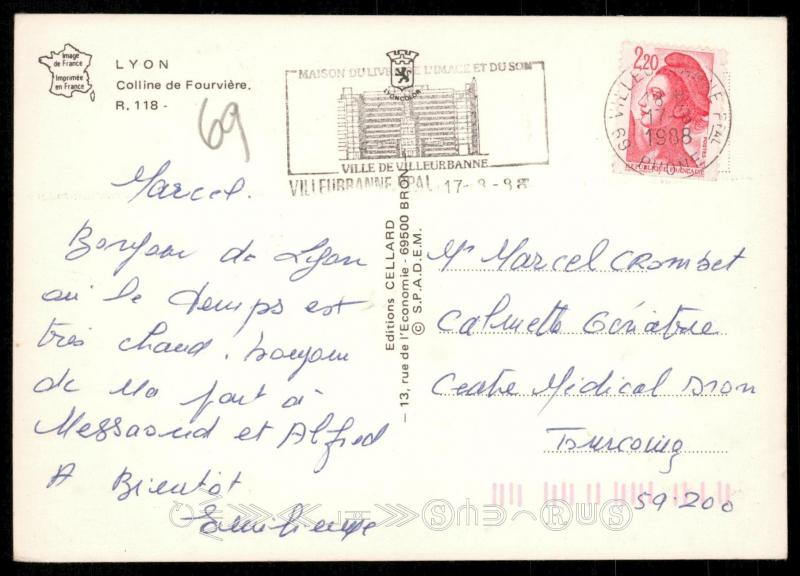 Image
de France
Imprimée
en France
LYON
Colline de Fourvière.
R. 118 -
69
MAISON DU LIVRE DE L'IMAGE ET DU SON
VILLE DE VILLEURBANNE
VILLEURBANNE PAL 17-8-88
2,20
REPUBLIQUE FRANÇAISE
1988
69 RHONE
Marcel.
Bonjour de Lyon
où le temps est
très chaud. bonjour
de ma part à
Messaoud et Alfred
A Bientôt
Editions CELLARD
- 13, rue de l'Economie - 69500 BRON
© S.P.A.D.E.M.
Mr Marcel CROMBET
Calmette Gériatrie
Centre Médical Dron
Tourcoing
59.200